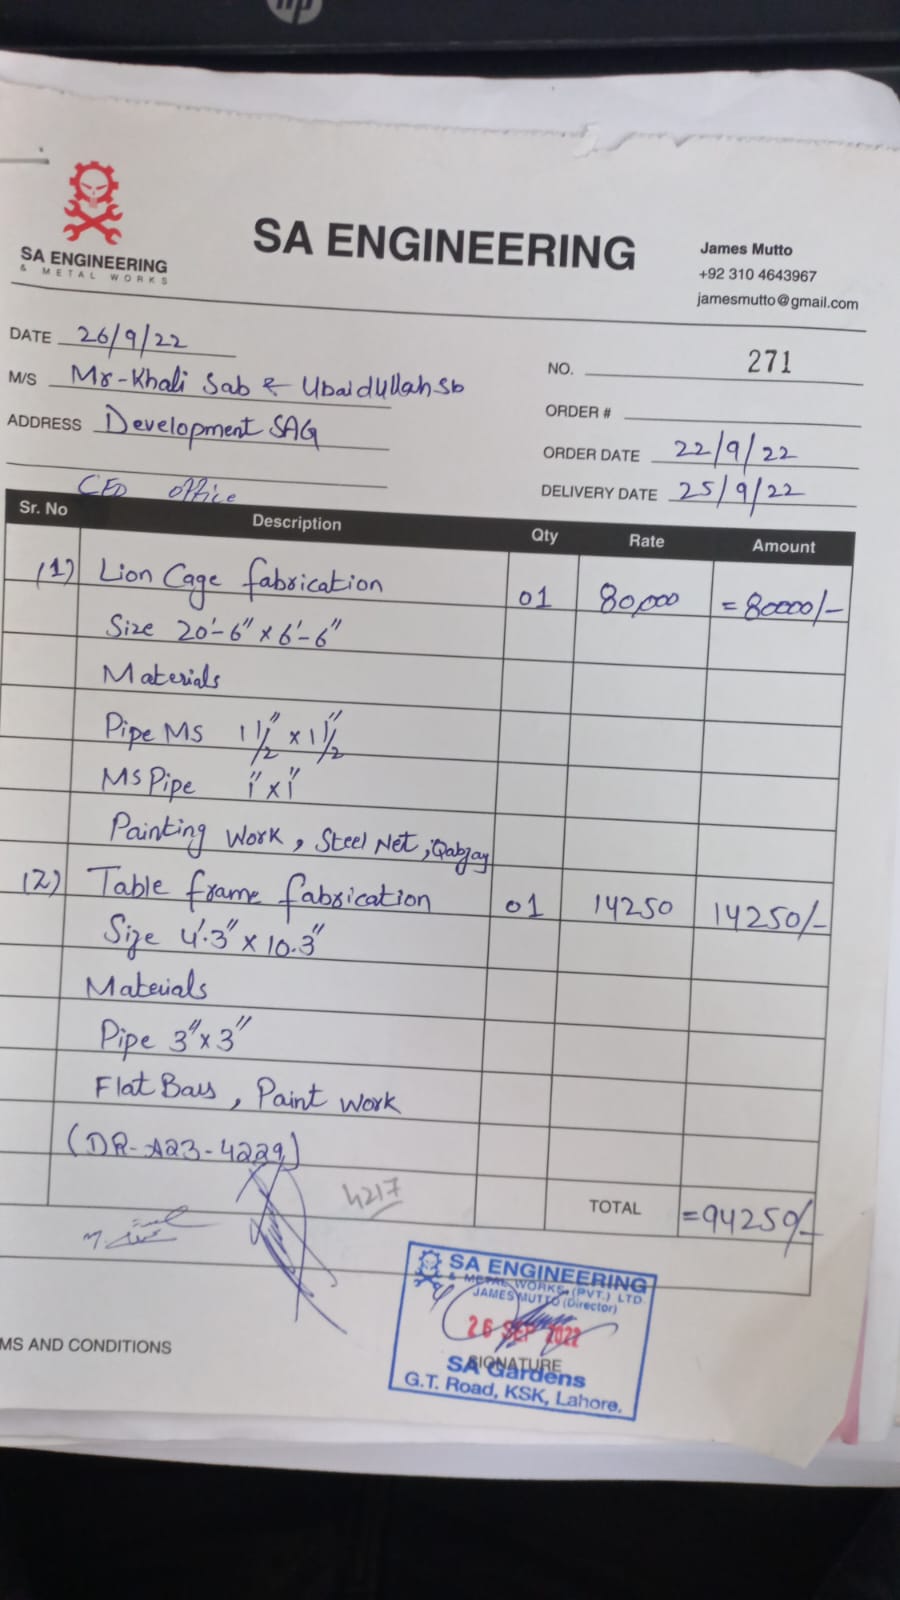 hp
SA ENGINEERING
& METAL WORKS
SA ENGINEERING
James Mutto
+92 310 4643967
jamesmutto@gmail.com
DATE 26/9/22
M/S Mr-Khali Sab & Ubaidullah Sb
ADDRESS Development SAG
CEO office
NO. 271
ORDER #
ORDER DATE 22/9/22
DELIVERY DATE 25/9/22
Sr. No Description Qty Rate Amount
(1) Lion Cage fabrication 01 80,000 =80000/-
Size 20'-6" x 6'-6"
Materials
Pipe MS 1 1/2" x 1 1/2"
MS Pipe 1" x 1"
Painting work, Steel Net, Qabzay
(2) Table frame fabrication 01 14250 14250/-
Size 4'.3" x 10.3"
Materials
Pipe 3" x 3"
Flat Bars, Paint work
(DR-A23-4229)
4217
TOTAL =94250/-
SA ENGINEERING
& METAL WORKS (PVT.) LTD
JAMES MUTTO (Director)
26 SEP 2022
SIGNATURE
SA Gardens
G.T. Road, KSK, Lahore.
MS AND CONDITIONS